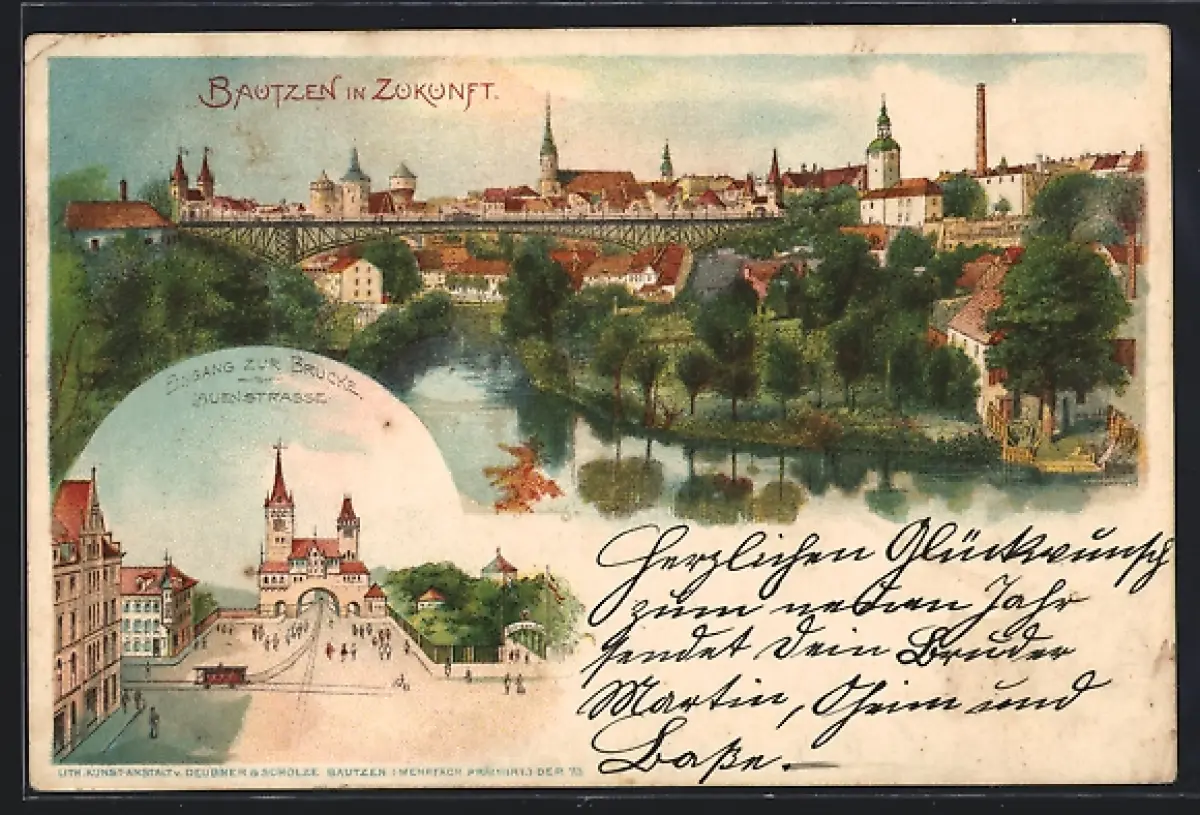 BAUTZEN IN ZUKUNFT.
EINGANG ZUR BRÜCKE
LAUENSTRASSE
Herzlichen Glückwunsch
zum neuen Jahr
sendet Dein Bruder
Martin, Oheim und
Baße.—
LITH. KUNST-ANSTALT v. DEUBNER & SCHOLZE BAUTZEN